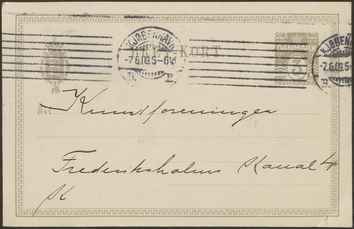 KJØBENHAVN
-7.6.09.5-6
KORT
KJØBENH
-7.6.09.5
3
Kunstforeningen
Frederiksholms Kanal 4
K